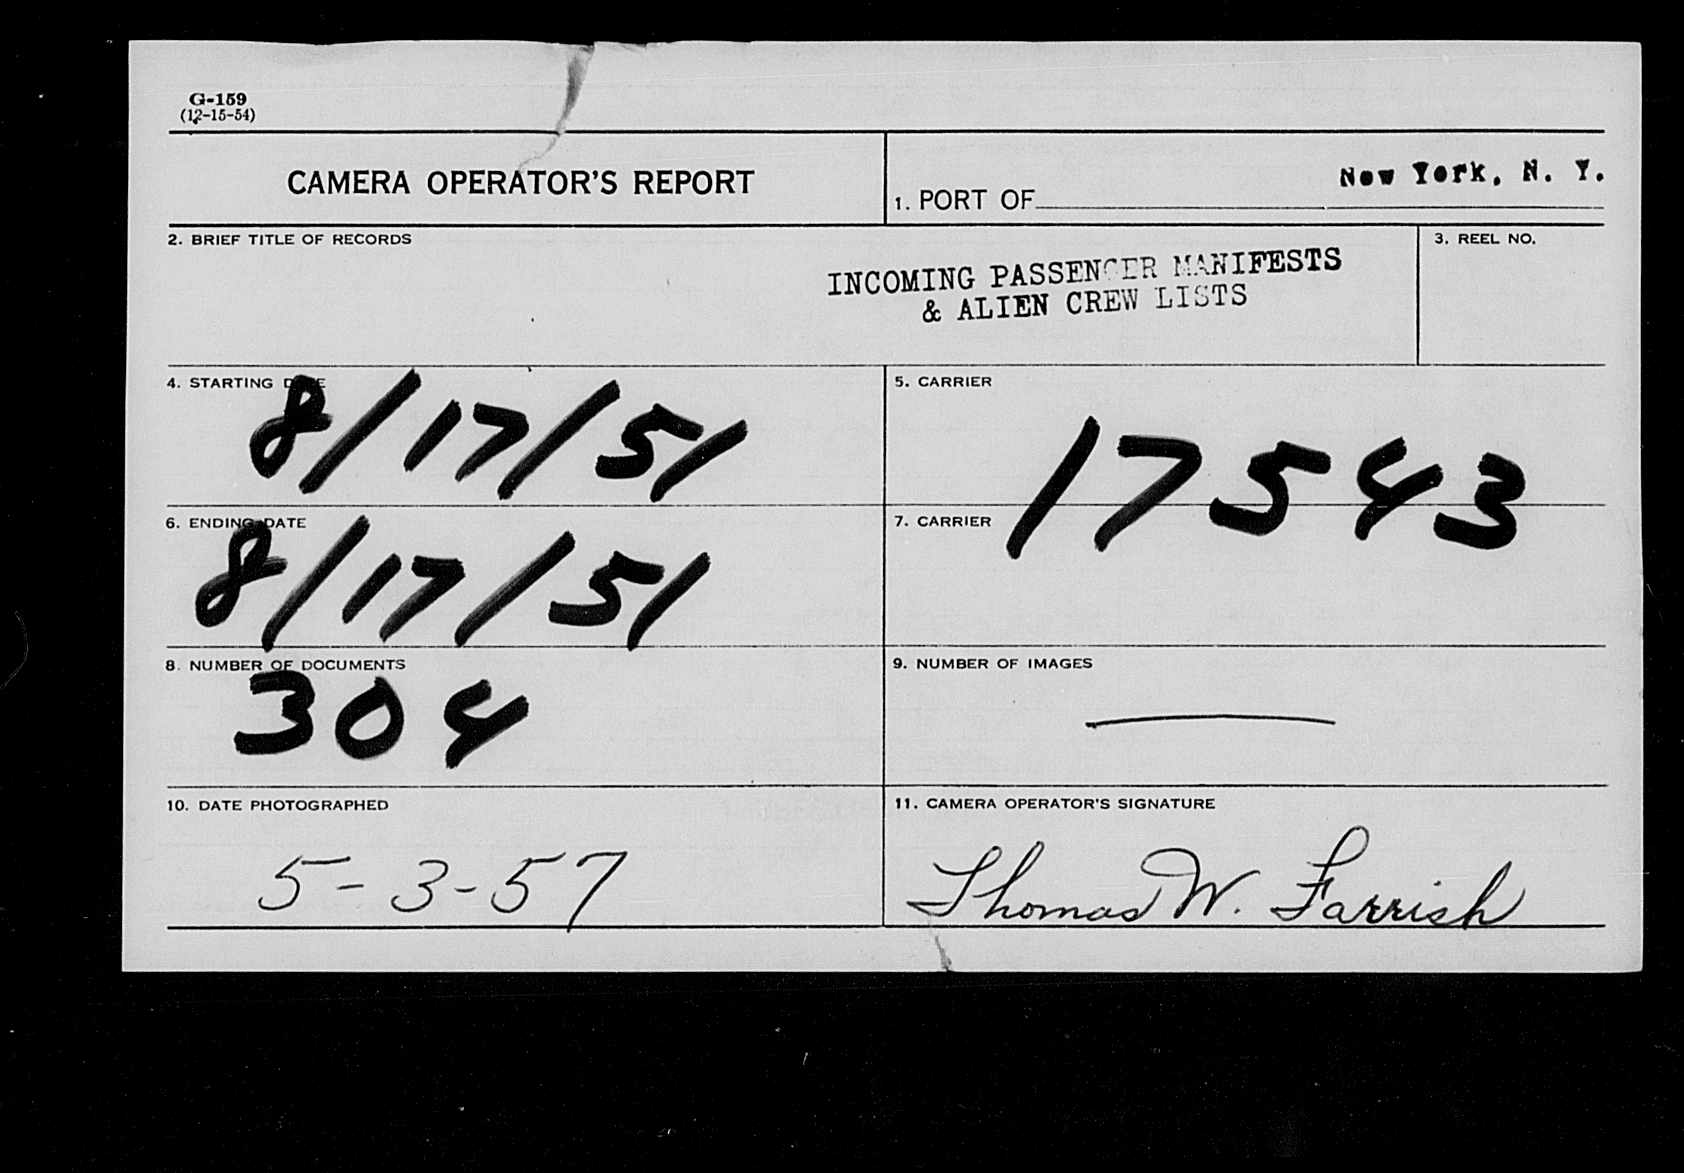 G-159
(12-15-54)
CAMERA OPERATOR'S REPORT
1. PORT OF New York, N. Y.
2. BRIEF TITLE OF RECORDS
INCOMING PASSENGER MANIFESTS
& ALIEN CREW LISTS
3. REEL NO.
4. STARTING DATE
8/17/51
5. CARRIER
17543
6. ENDING DATE
8/17/51
7. CARRIER
8. NUMBER OF DOCUMENTS
304
9. NUMBER OF IMAGES
10. DATE PHOTOGRAPHED
5-3-57
11. CAMERA OPERATOR'S SIGNATURE
Thomas W. Farrish